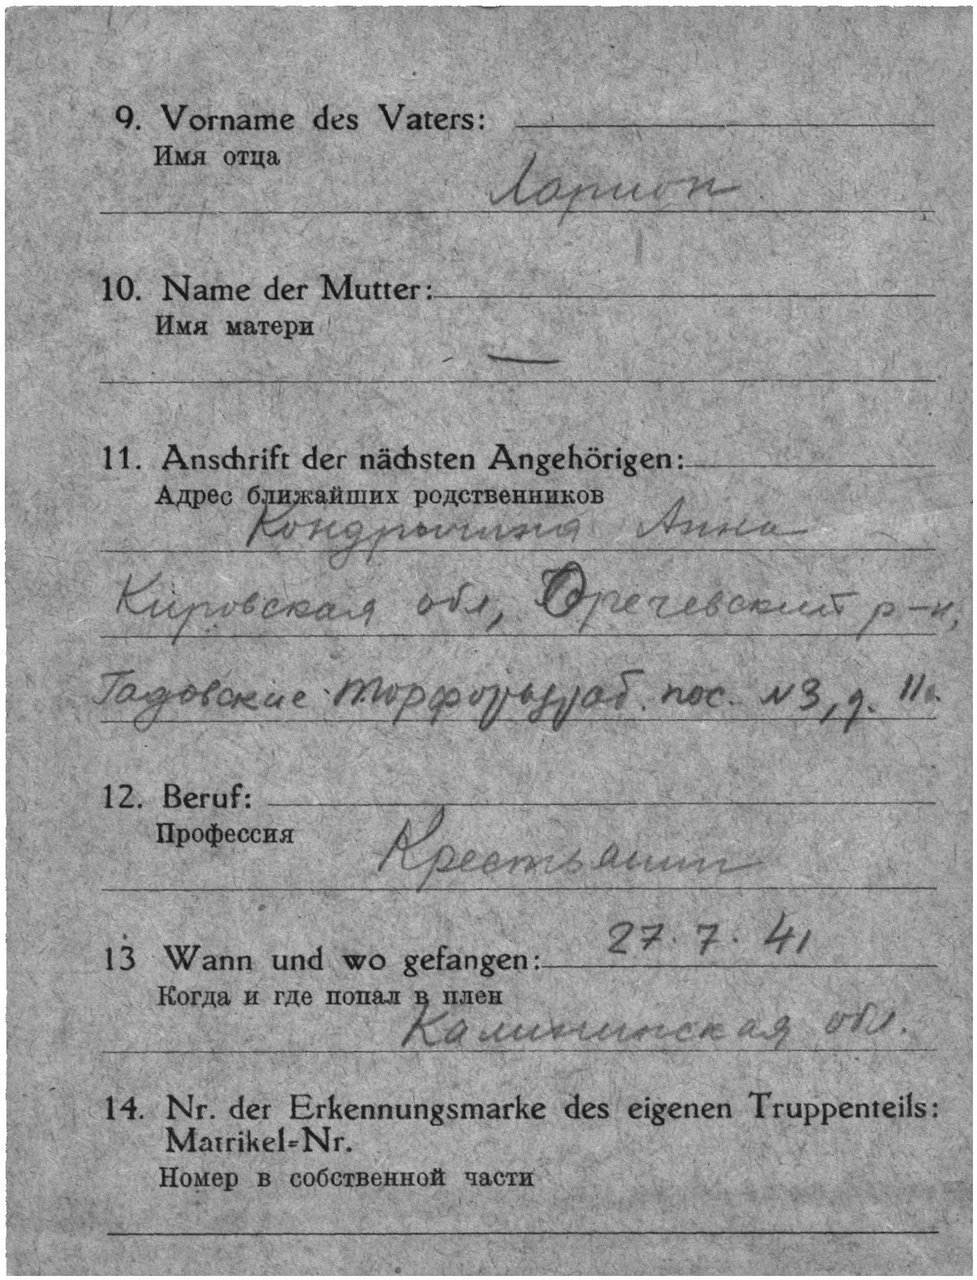 9. Vorname des Vaters:
Имя отца
Ларион
10. Name der Mutter:
Имя матери
—
11. Anschrift der nächsten Angehörigen:
Адрес ближайших родственников
Анна
Кировская обл, Оречевский р-н,
пос. №3, д. 11
12. Beruf:
Профессия
Крестьянин
13 Wann und wo gefangen: 27. 7. 41
Когда и где попал в плен
Калининская обл.
14. Nr. der Erkennungsmarke des eigenen Truppenteils:
Matrikel-Nr.
Номер в собственной части